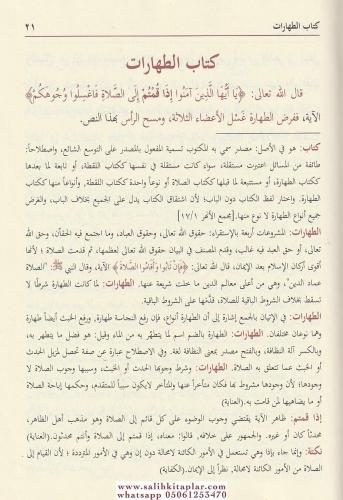 كتاب الطهارات ٢١
كتاب الطهارات
قال الله تعالى: ﴿يَا أَيُّهَا الَّذِينَ آمَنُوا إِذَا قُمْتُمْ إِلَى الصَّلَاةِ فَاغْسِلُوا وُجُوهَكُمْ﴾
الآية، ففرض الطهارة غَسْل الأعضاء الثلاثة، ومسح الرأس بهذا النص.
كتاب: هو في الأصل: مصدر سمي به المكتوب تسمية المفعول بالمصدر على التوسع الشائع، واصطلاحاً:
طائفة من المسائل اعتبرت مستقلة، سواء كانت مستقلة في نفسها ككتاب اللقطة، أو تابعة لما بعدها
ككتاب الطهارة، أو مستتبعة لما قبلها ككتاب الصلاة أو نوعاً واحدة ككتاب اللقطة، وأنواعاً منها ككتاب
الطهارة. واختار لفظ الكتاب دون الباب؛ لأن اشتقاق الكتاب يدل على الجميع بخلاف الباب، والغرض
جميع أنواع الطهارة لا نوع منها. [مجمع الأنهر ١٧/١]
الطهارات: المشروعات أربعة بالإستقراء: حقوق الله تعالى، وحقوق العباد، وما اجتمع فيه الحقان، وحق الله
تعالى، أو حق العبد فيه غالب، وقدم المصنف في البيان حقوق الله تعالى لعظمها، ثم قدمت الصلاة؛ لأنها
أقوى أركان الإسلام بعد الإيمان، قال الله تعالى: ﴿فَإِنْ تَابُوا وَأَقَامُوا الصَّلَاةَ﴾ الآية، وقال النبي ﷺ: "الصلاة
عماد الدين"، وهي من أعلى معالم الدين ما خلت شريعة عنها. الطهارات: لما كانت الطهارة شرطًا لا
تسقط بخلاف الشروط الباقية للصلاة، قدّمها على الشروط الباقية.
الطهارات: في الإتيان بالجمع إشارة إلى أن الطهارة أنواع، فإن رفع النجاسة طهارة، ورفع الخبث أيضاً طهارة
وهما نوعان مختلفان. الطهارات: الطهارة بالضم اسم لما يتطهّر به من الماء وقيل: هو فضل ما يتطهر به،
وبالكسر آلة النظافة، وبالفتح مصدر بمعنى النظافة لغة. وفي الاصطلاح عبارة عن صفة تحصل لمزيل الحدث
أو الخبث عما تتعلق به الصلاة. الطهارات: وشرط وجوبها الحدث أو الخبث، وسببها وجوب الصلاة لا
وجودها؛ لأن وجودها مشروط بها فكان متأخراً عنها والمتأخر لايكون سبباً للمتقدم، وحكمها إباحة الصلاة
أو ما يضاهيها لمن قامت به. (العناية)
إذا قمتم: ظاهر الآية يقتضي وجوب الوضوء على كل قائم إلى الصلاة وهو مذهب أهل الظاهر،
محدثًا كان أو غيره. والجمهور على خلافه، قالوا: معناه، إذا قمتم إلى الصلاة وأنتم محدثون. (العناية)
نكتة: وإنما جاء بإذا وهي تستعمل في الأمور الكائنة لامحالة دون إن وهي في الأمور المترددة؛ لأن القيام إلى
الصلاة من الأمور الكائنة لامحالة، نظراً إلى الإيمان. (الكفاية)
www.salihkitaplar.com
whatsapp 05061253470